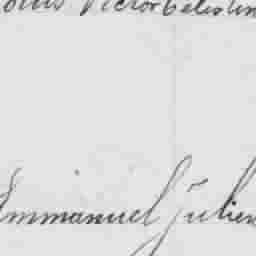 Louis Victor Celestin
Emmanuel Julien